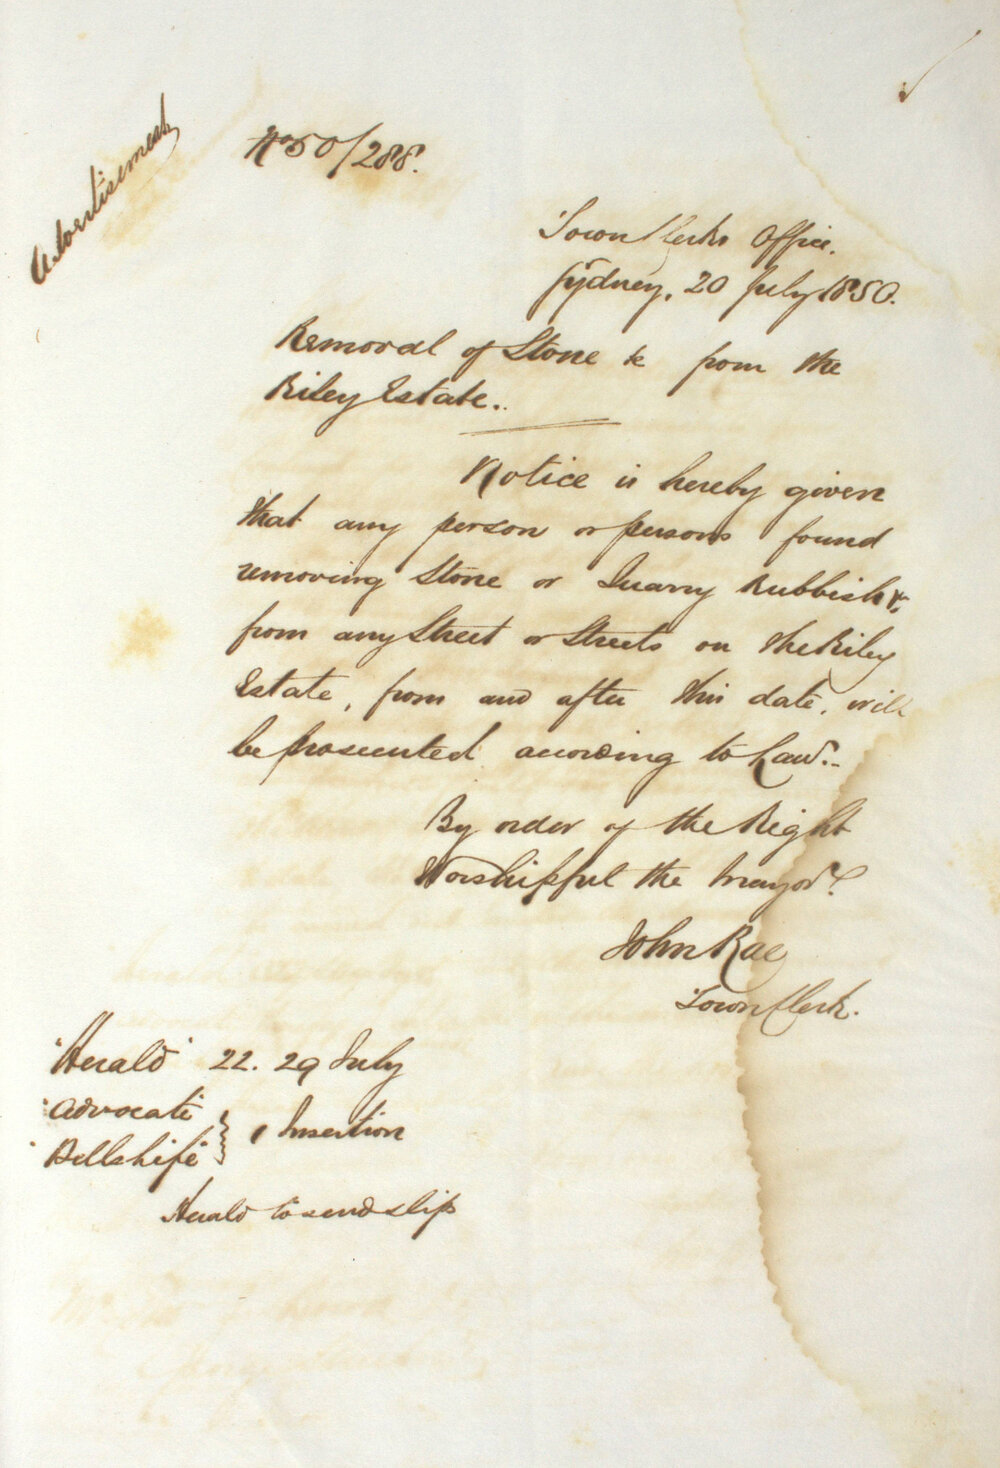 Advertisement
No 50/288.
Town Clerks Office.
Sydney, 20 July 1850.
Removal of Stone &c from the
Riley Estate.
Notice is hereby given
that any person or persons found
removing Stone or Quarry Rubbish &c
from any Street or Streets on the Riley
Estate, from and after this date, will
be prosecuted according to Law.
By order of the Right
Worshipful the Mayor.
John Rae
Town Clerk.
"Herald" 22. 29 July
"Advocate
"Bellslife" } 1 Insertion
Herald to send slip